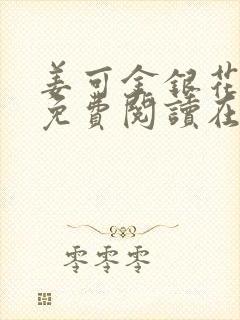 姜可金銀花
免費閱讀在
零零零